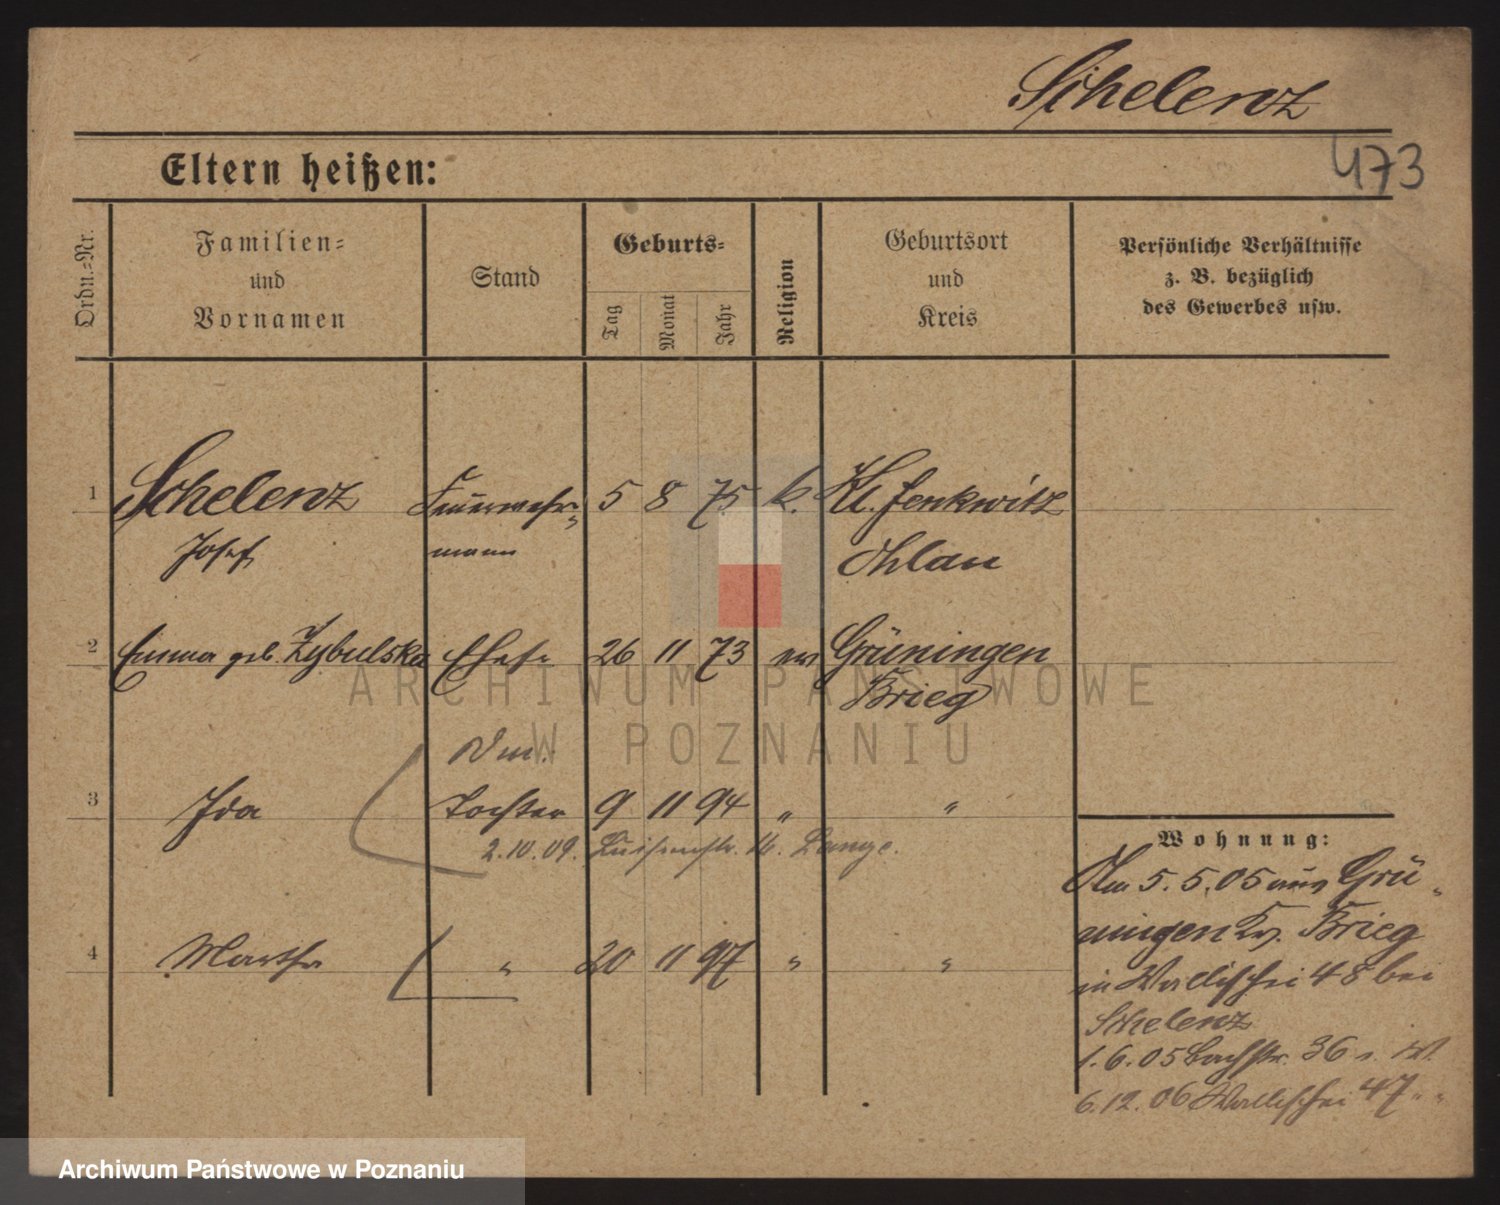 Schelenz
473
Eltern heißen:
Ordn.=Nr.
Familien=
und
Vornamen
Stand
Geburts=
Tag
Monat
Jahr
Religion
Geburtsort
und
Kreis
Persönliche Verhältnisse
z. B. bezüglich
des Gewerbes usw.
1 Schelenz Feuerwehr= 5 8 75 k. Kl. Jenkwitz
Josef mann Ohlau
2 Emma geb. Zybulska Ehefr. 26 11 73 ev Grüningen
Brieg
Dm.
3 Ida Tochter 9 11 94 " "
2.10.09. Luisenstr. 16. Lange.
4 Martha " 20 11 97 " "
Wohnung:
Am 5.5.05 aus Grü-
ningen Kr. Brieg
in Wallischei 48 bei
Schelenz
1.6.05 Bachstr. 36
6.12.06 Wallischei 47 " "
ARCHIWUM PAŃSTWOWE
W POZNANIU
Archiwum Państwowe w Poznaniu